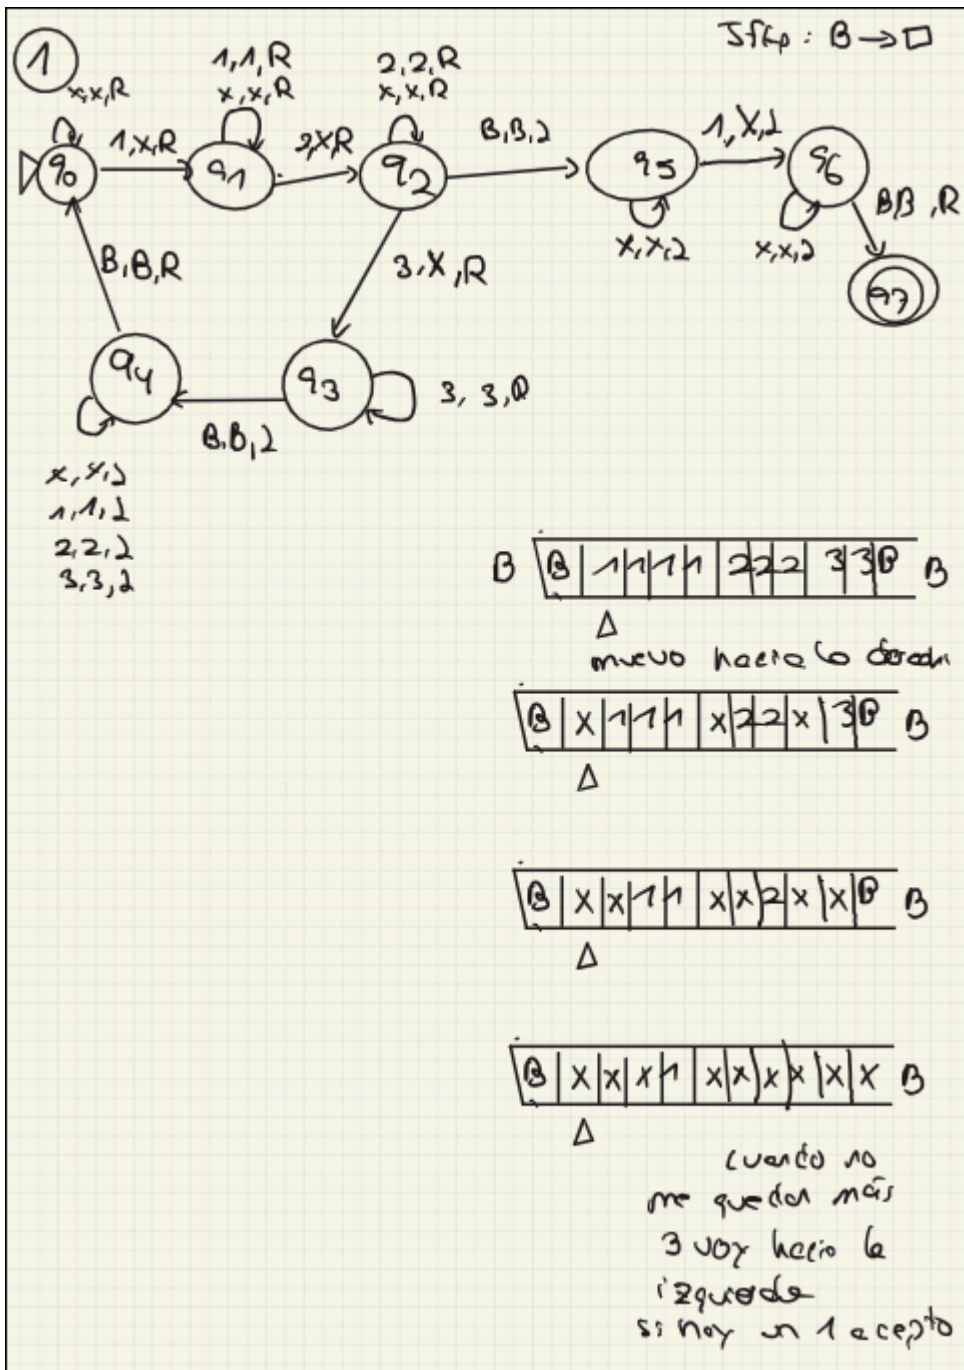 1
Jflap: B → □
x,x,R
1,1,R
x,x,R
2,2,R
x,x,R
q0
1,X,R
q1
2,X,R
q2
B,B,2
q5
1,X,2
q6
x,x,2
x,x,2
B,B,R
q7
B,B,R
3,X,R
q4
q3
3, 3,R
B,B,2
x,x,2
1,1,2
2,2,2
3,3,2
B B 1 1 1 1 2 2 2 3 3 B B
muevo hacia la derecha
B X 1 1 1 X 2 2 X 3 B B
B X X 1 1 X X 2 X X B B
B X X X 1 X X X X X X B
cuando no
me quedan más
3 voy hacia la
izquierda
si hay un 1 acepto